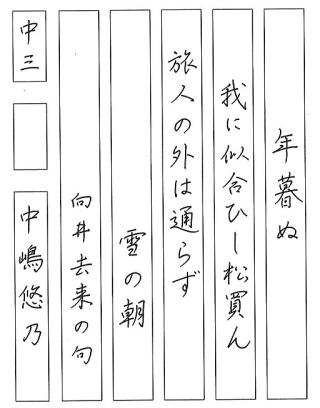 年暮ぬ
我に似合ひし松買ん
旅人の外は通らず
雪の朝
向井去来の句
中三
中嶋悠乃